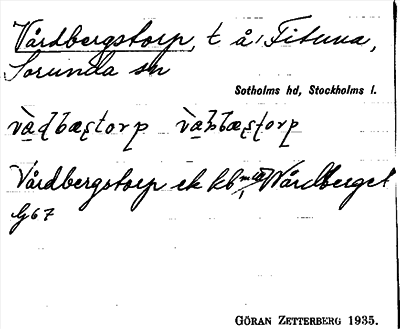 Vårdbergstorp, t å Fituna,
Sorunda sn
Sotholms hd, Stockholms l.
Vårdbergstorp ek kb Vårdberget
G 67
GÖRAN ZETTERBERG 1935.